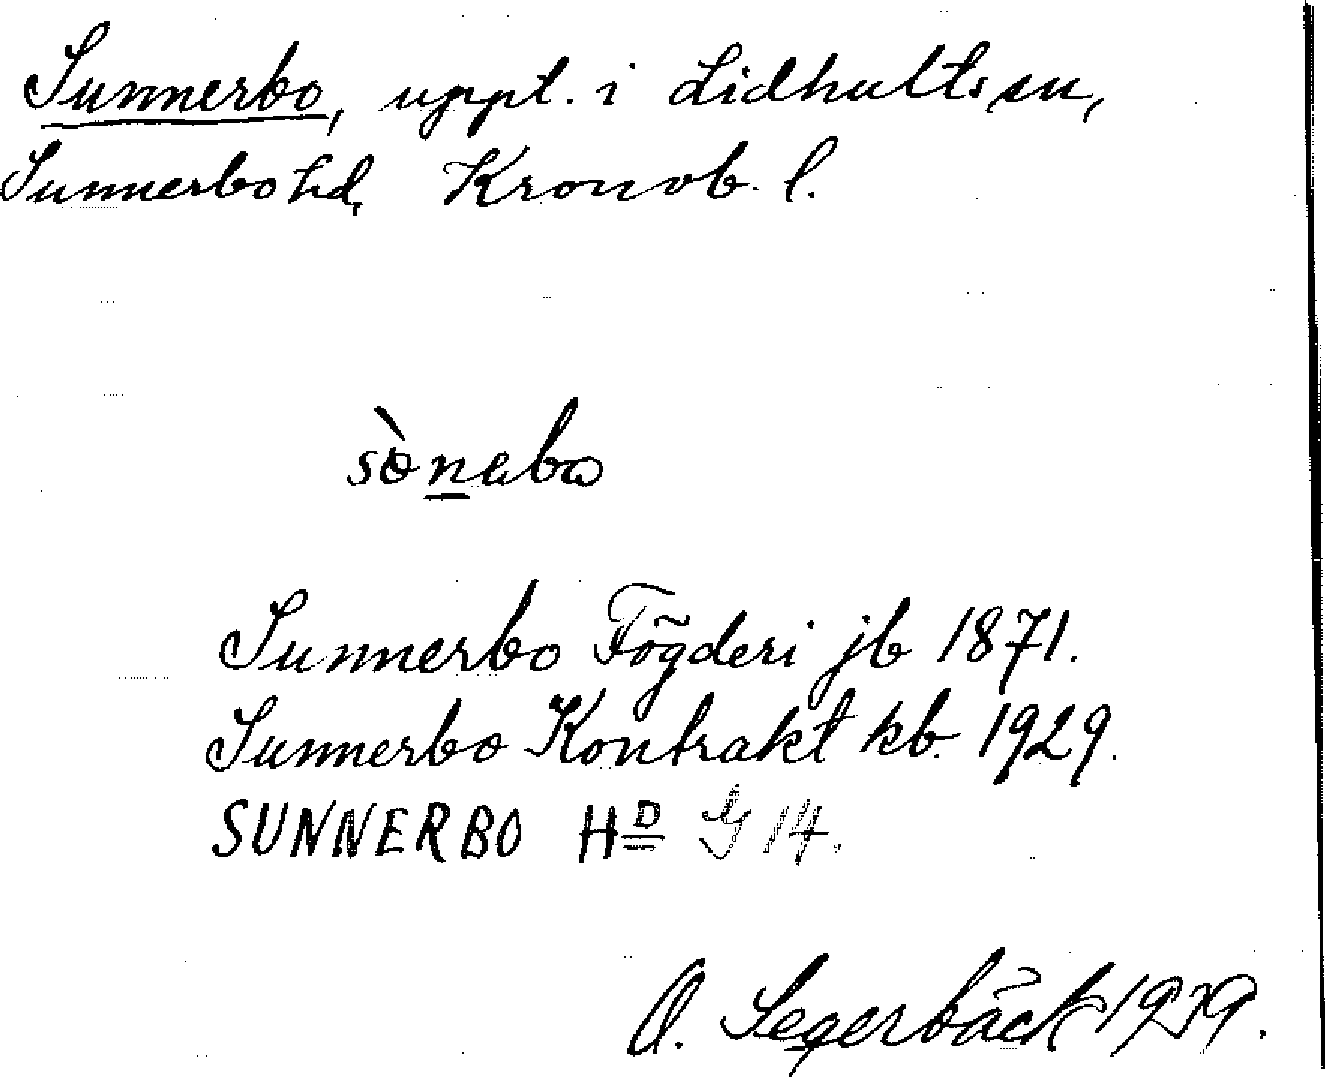 Sunnerbo, uppt. i Lidhults sn,
Sunnerbo hd, Kronob. l.
sònabo
Sunnerbo Fögderi jb 1871.
Sunnerbo Kontrakt kb. 1929.
SUNNERBO HD G 14.
O. Segerbäck 1929.